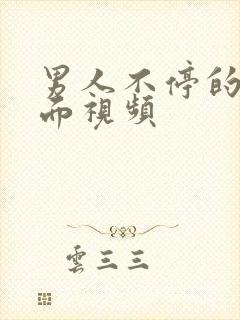 男人不停的
而視頻
雲三三